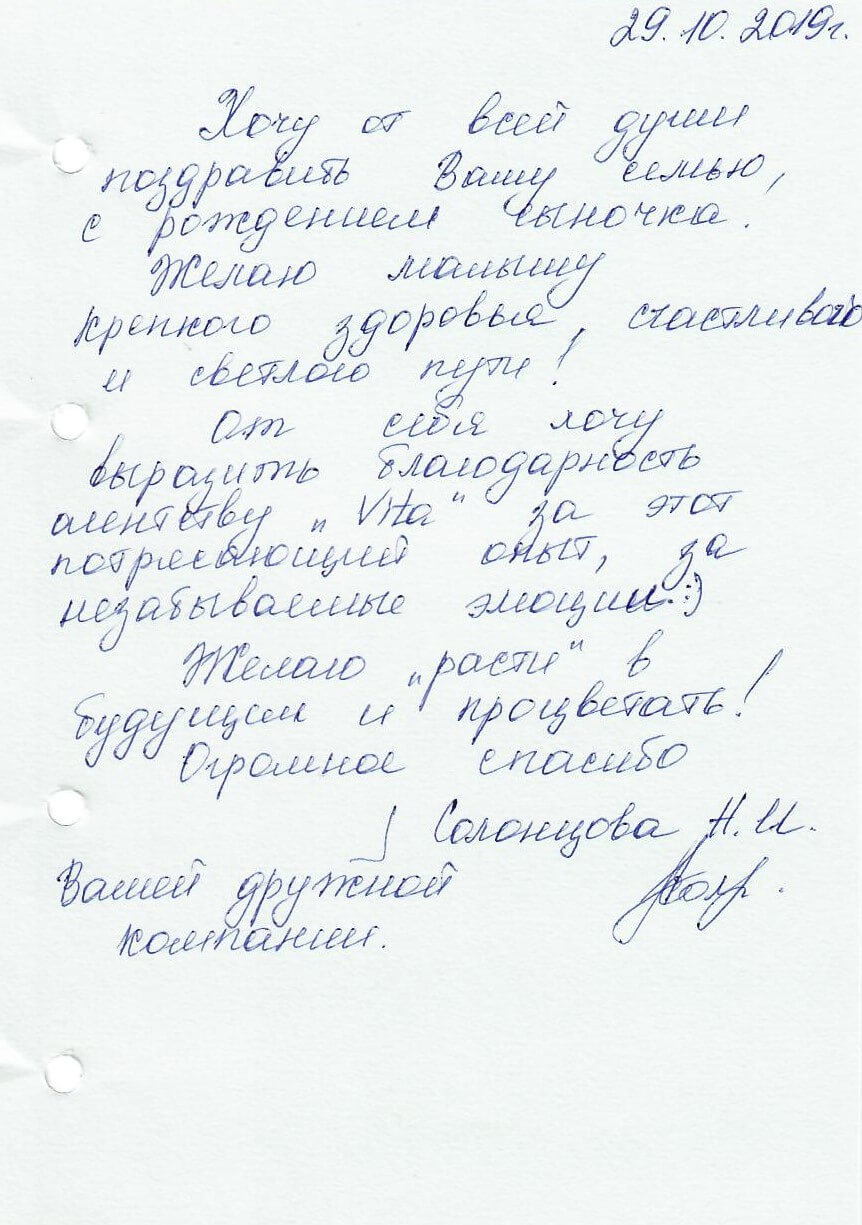 29.10.2019г.
Хочу от всей души
поздравить Вашу семью,
с рождением сыночка.
Желаю малышу
крепкого здоровья, счастливого
и светлого пути!
От себя хочу
выразить благодарность
агентству „Vita“ за этот
потрясающий опыт, за
незабываемые эмоции.:)
Желаю „расти“ в
будущем и процветать!
Огромное спасибо
Солонцова Н.И.
Вашей дружной
компании.